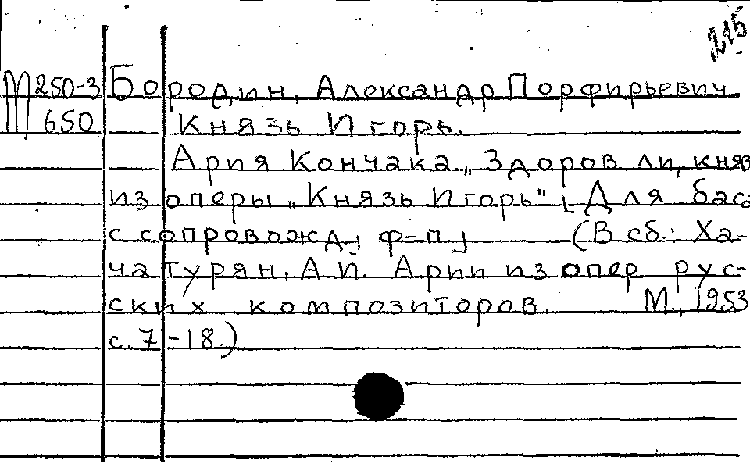 215
М250-3 Бородин, Александр Порфирьевич
650 Князь Игорь.
Ария Кончака „Здоров ли, князь
из оперы „Князь Игорь" [Для баса
с сопровожд. ф-п.] (В сб.: Ха-
чатурян, А.И. Арии из опер рус-
ских композиторов. М., 1953
с. 7-18.)